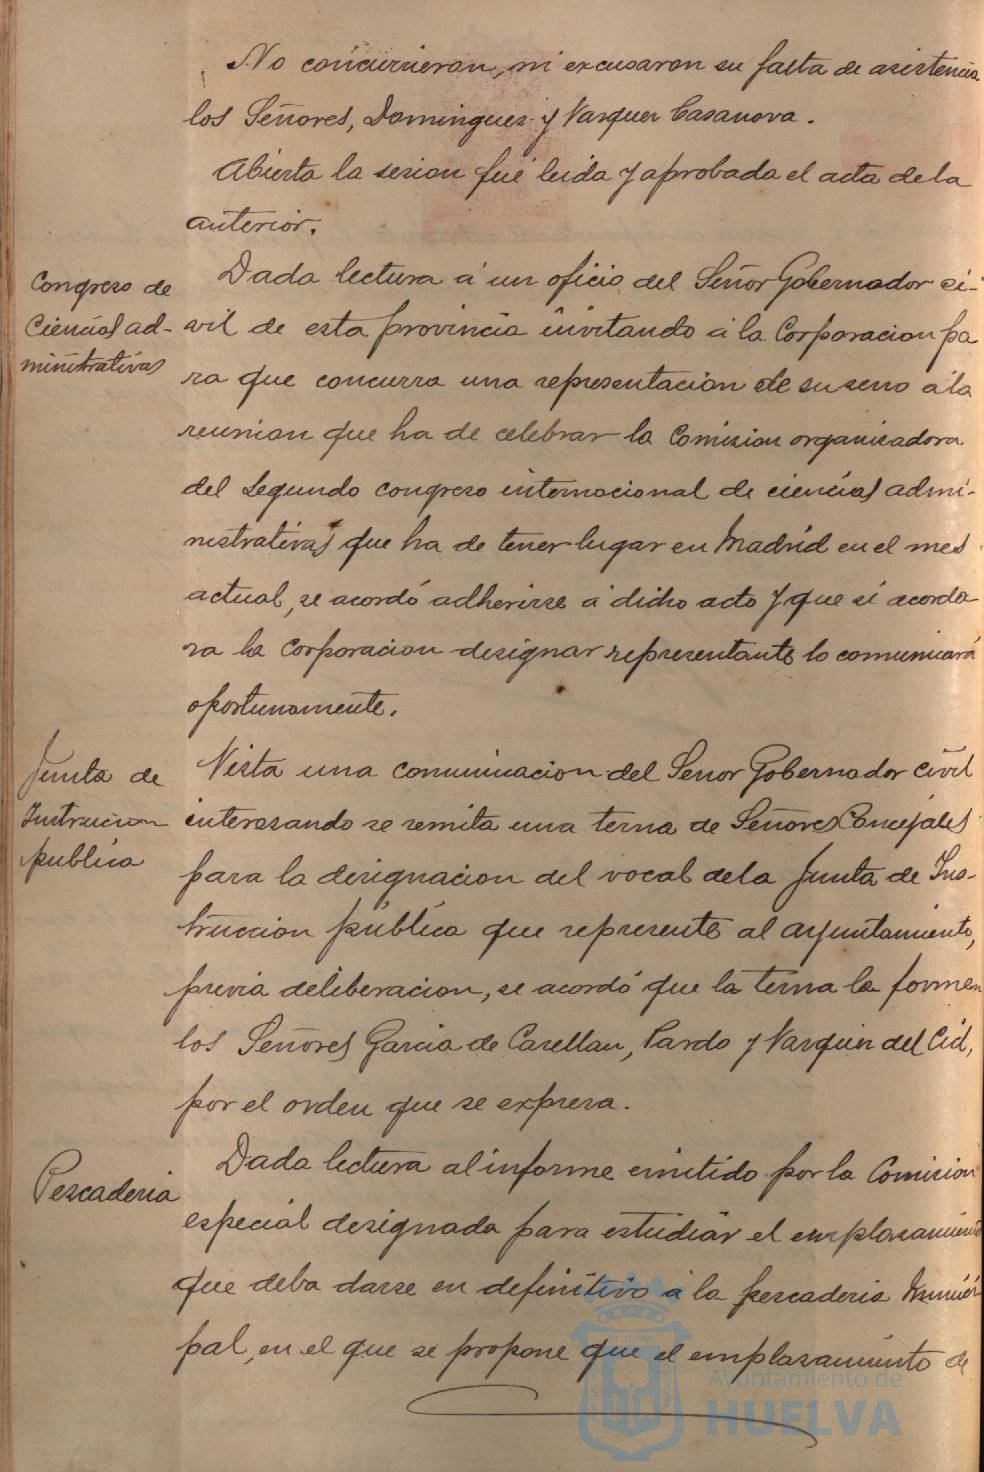 No concurrieron, ni excusaron su falta de asistencia
los Señores, Dominguez y Vazquez Casanova.
Abierta la sesion fué leida y aprobada el acta de la
anterior.
Congreso de
Ciencias ad-
ministrativas
Dada lectura á un oficio del Señor Gobernador ci-
vil de esta provincia invitando á la Corporacion pa
ra que concurra una representacion de su seno á la
reunion que ha de celebrar la Comision organizadora
del Segundo congreso internacional de ciencias admi-
nistrativas que ha de tener lugar en Madrid en el mes
actual, se acordó adherirse á dicho acto y que si acorda
ra la Corporacion designar representante lo comunicará
oportunamente.
Junta de
Instruccion
publica
Vista una comunicacion del Señor Gobernador civil
interesando se remita una terna de Señores Concejales
para la designacion del vocal de la Junta de Ins-
truccion pública que represente al ayuntamiento,
previa deliberacion, se acordó que la terna la formen
los Señores Garcia de Casellan, Pardo y Vazquez del Cid,
por el orden que se expresa.
Pescaderia
Dada lectura al informe emitido por la Comision
especial designada para estudiar el emplazamiento
que deba darse en definitivo á la pescaderia Munici
pal, en el que se propone que el emplazamiento de
Ayuntamiento de
HUELVA